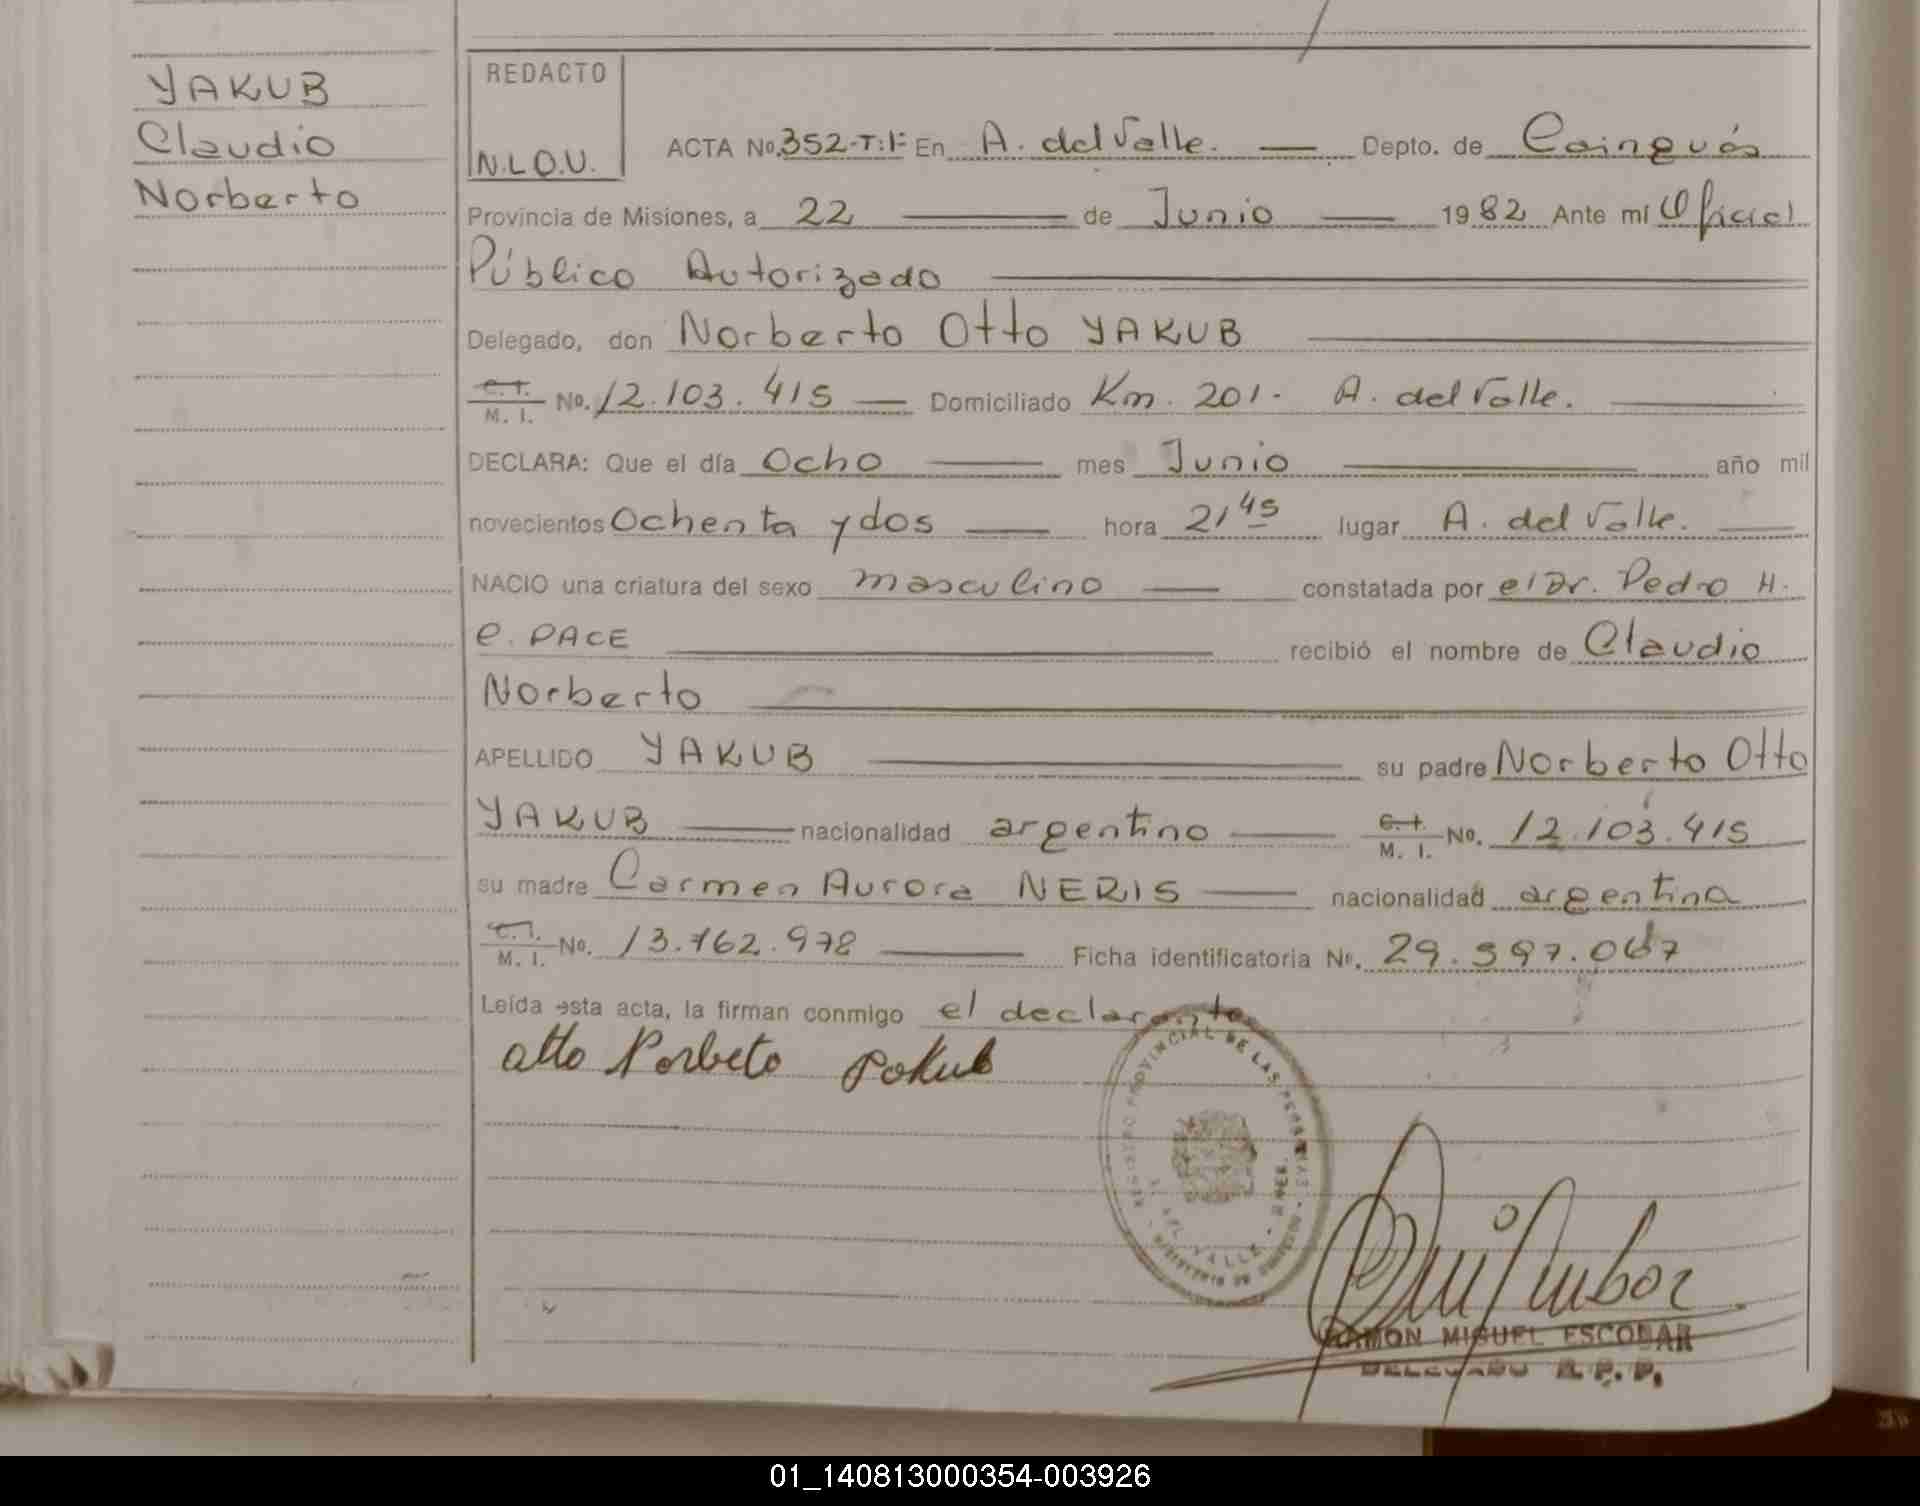 YAKUB
Claudio
Norberto
REDACTO
N.L.O.U.
ACTA No. 352-T:I- En A. del Valle. Depto. de Cainguás
Provincia de Misiones, a 22 de Junio 1982 Ante mí Oficial
Público Autorizado
Delegado, don Norberto Otto YAKUB
C.I. M. I. No. 12.103.415 Domiciliado Km. 201. A. del Valle.
DECLARA: Que el día Ocho mes Junio año mil
novecientos Ochenta y dos hora 21 45 lugar A. del Valle.
NACIO una criatura del sexo masculino constatada por el Dr. Pedro H.
C. PACE recibió el nombre de Claudio
Norberto
APELLIDO YAKUB su padre Norberto Otto
YAKUB nacionalidad argentino C.I. M. I. No. 12.103.415
su madre Carmen Aurora NERIS nacionalidad argentina
C.I. M. I. No. 13.762.978 Ficha identificatoria No. 29.597.067
Leída esta acta, la firman conmigo el declarante
Otto Norbeto Yakub
PROVINCIAL DE LAS PERSONAS
DEL VALLE
RAMON MIGUEL ESCOBAR
DELEGADO R. P. P.
01_140813000354-003926